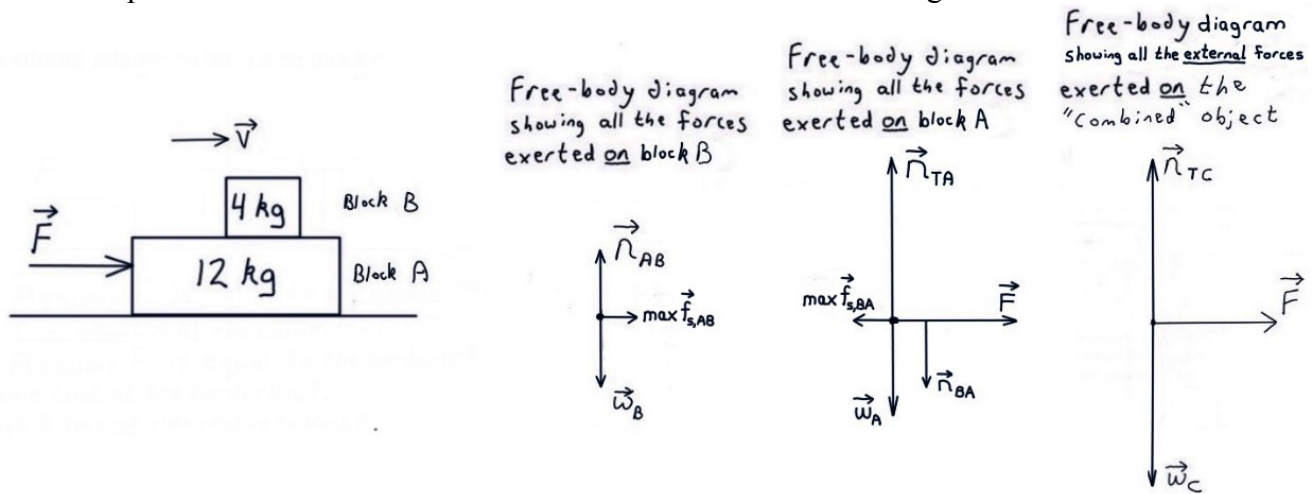 → v⃗
F⃗
4 kg
Block B
12 kg
Block A
Free-body diagram
showing all the forces
exerted on block B
n⃗_AB
max f⃗_s,AB
w⃗_B
Free-body diagram
showing all the forces
exerted on block A
n⃗_TA
max f⃗_s,BA
F⃗
n⃗_BA
w⃗_A
Free-body diagram
showing all the external forces
exerted on the
"Combined" object
n⃗_TC
F⃗
w⃗_C